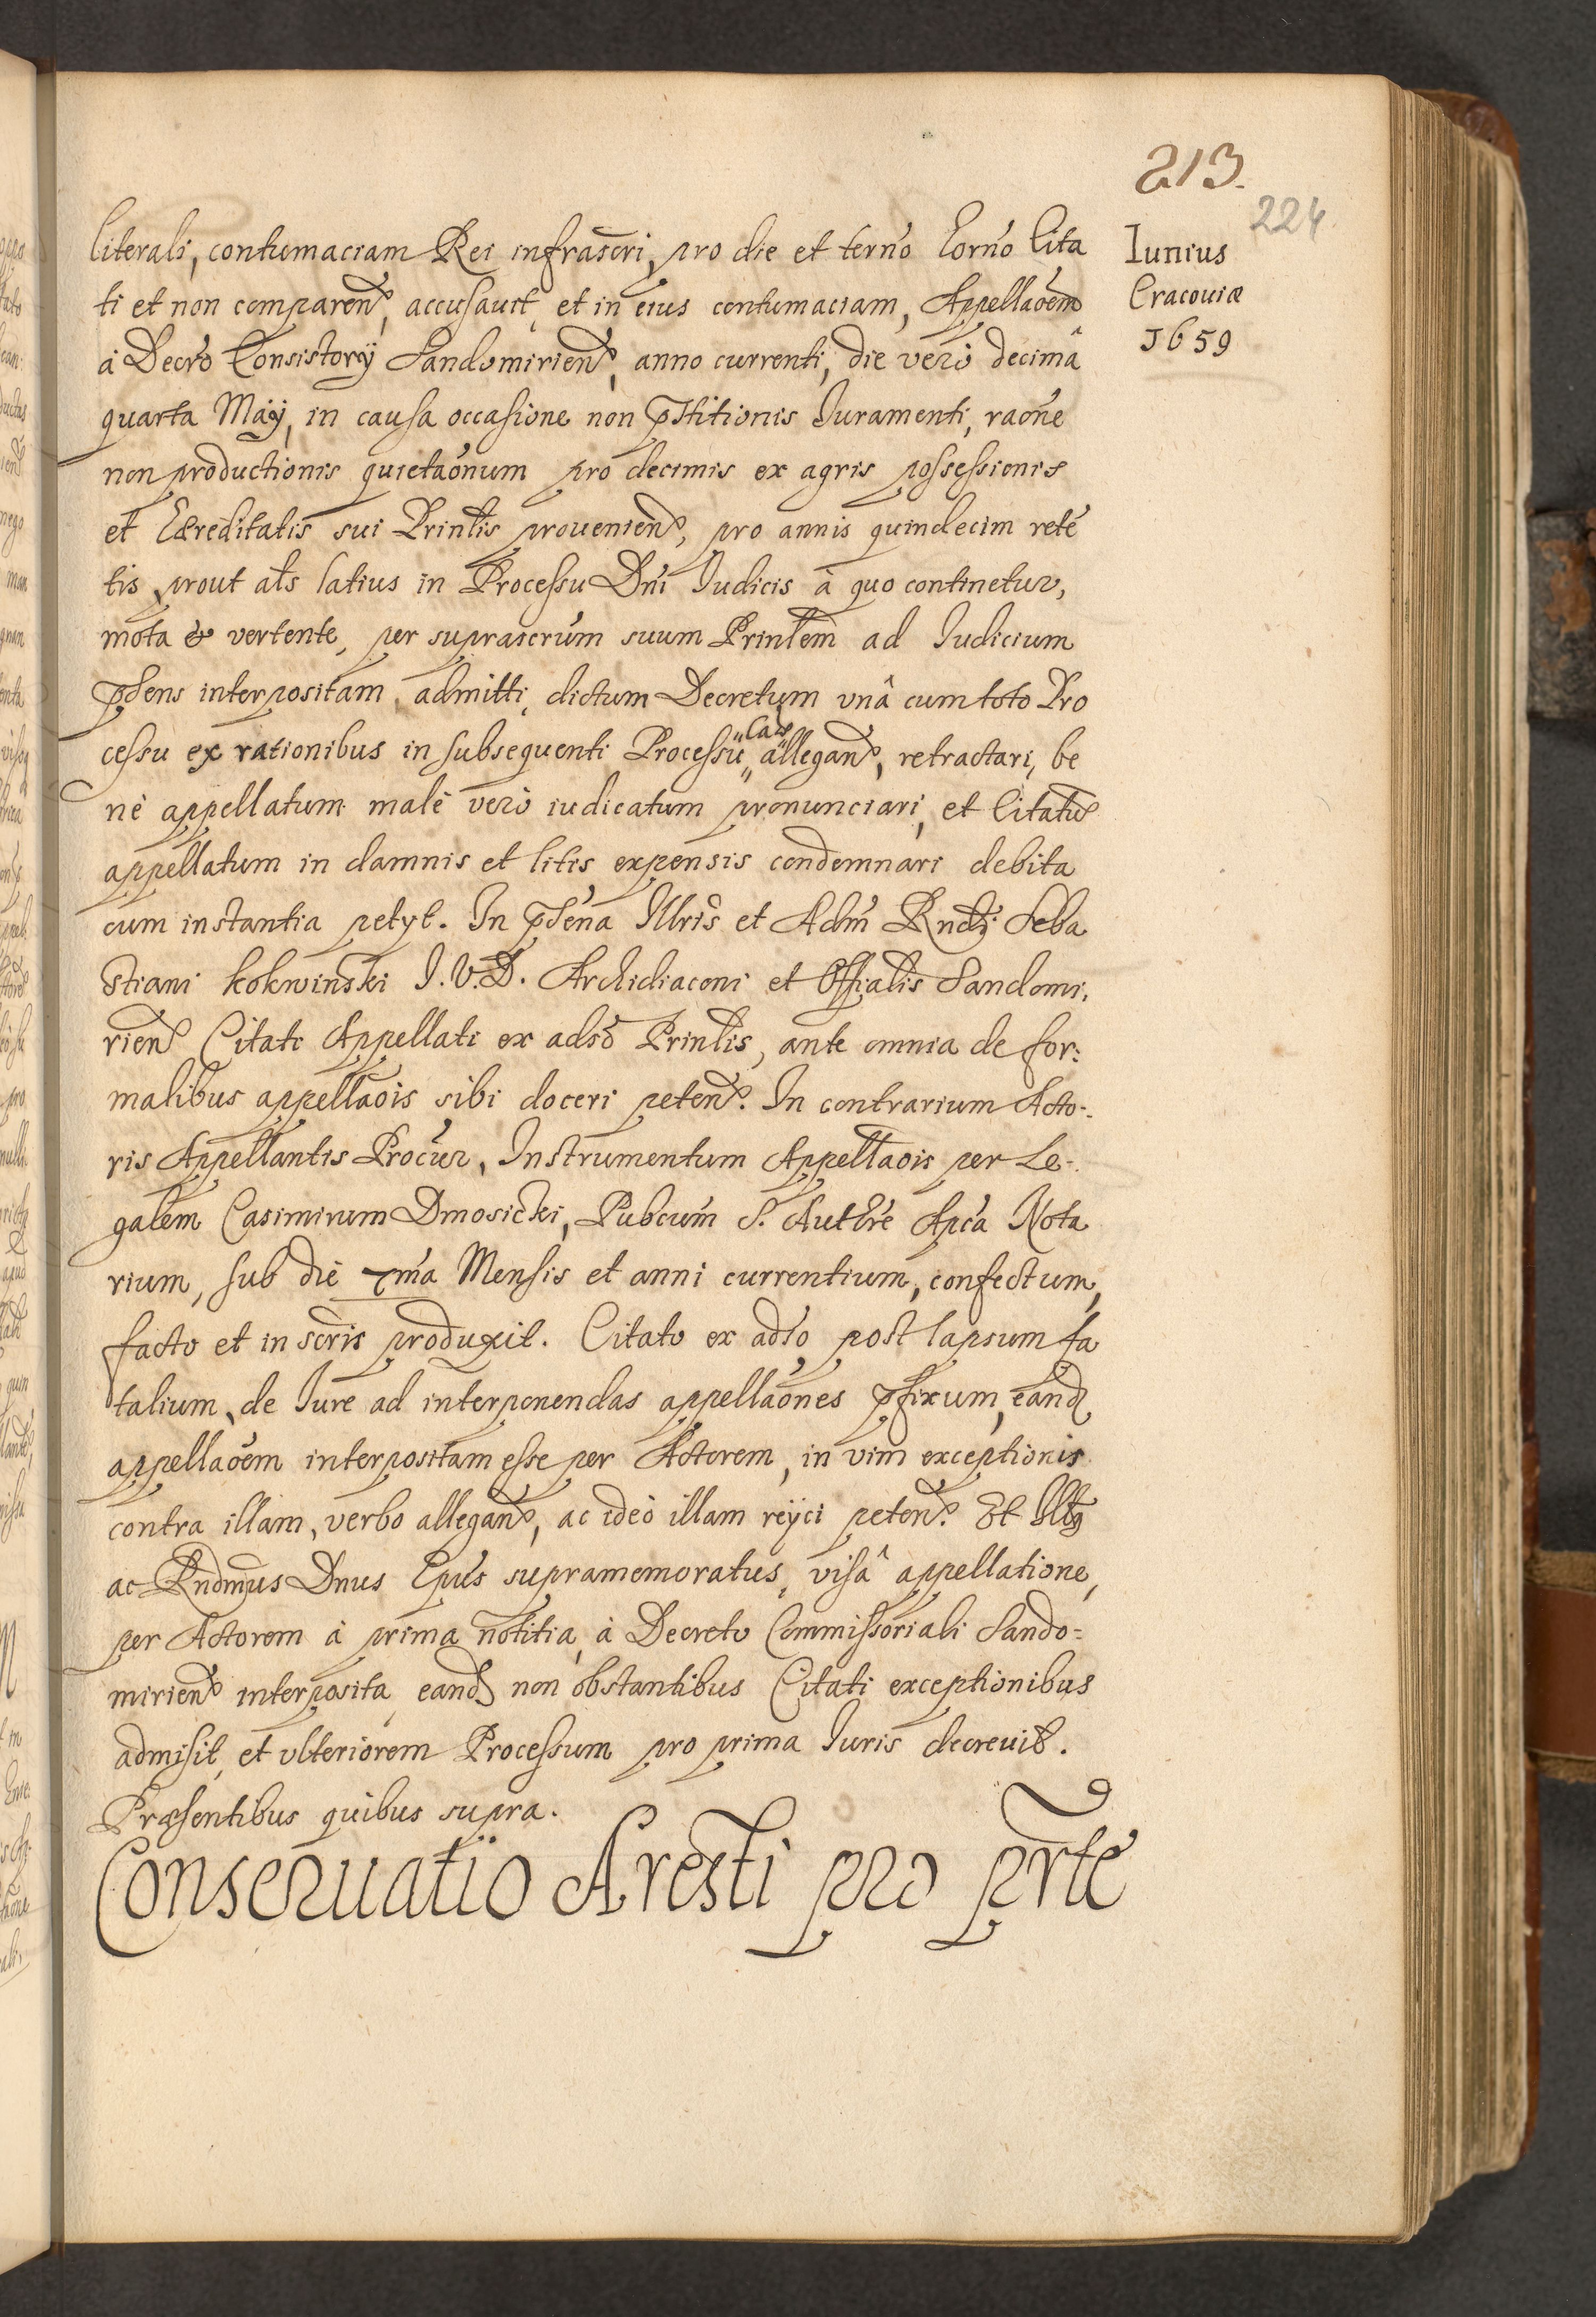 213.
224.
Iunius
Cracouiæ
1659
literali, contumaciam Rei infrascri, pro die et termo horno Cita
ti et non comparen, accusauit, et in eius contumaciam, Appellaoem
à Decro Consistorij Sandomirien, anno currenti, die verò decimâ
quarta Maij, in causa occasione non pstitionis Iuramenti, raone
non productionis quietaonum pro decimis ex agris possessionis
et Hæreditatis sui Prinlis prouenien, pro annis quindecim reten
tis, prout als latius in Processu Dni Iudicis à quo continetur,
mota & vertente, per suprascrum suum Prinlem ad Iudicium
psens interpositam, admitti, dictum Decretum vnâ cum toto Pro
cessu ex rationibus in subsequenti Processu Cae allegan, retractari, be
nè appellatum malè verò iudicatum pronunciari, et Citatu
appellatum in damnis et litis expensis condemnari debita
cum instantia petyt. In psena Illris et Adm Rndi Seba
stiani Kokwinski I.V.D. Archidiaconi et Offialis Sandomi,
rien Citati Appellati ex adso Prinlis, ante omnia de for:
malibus appellaois sibi doceri peten. In contrarium Acto:
ris Appellantis Procur, Instrumentum Appellaois per Le:
galem Casimirum Dmosicki, Pubcum S. Authre Apca Nota
rium, sub die 7ma Mensis et anni currentium, confectum,
facto et in scris produxit. Citato ex adso post lapsum fa
talium, de Iure ad interponendas appellaones pfixum, eand
appellaoem interpositam esse per Actorem, in vim exceptionis
contra illam, verbo allegan, ac ideò illam reijci peten. Et Illus
ac Rndmus Dnus Epus supramemoratus, visâ appellatione,
per Actorem à prima notitia, à Decreto Commissoriali Sando=
mirien interposita, eand non obstantibus Citati exceptionibus
admisit, et vlteriorem Processum pro prima Iuris decreuit.
Præsentibus quibus supra.
Conseruatio Aresti pro prte